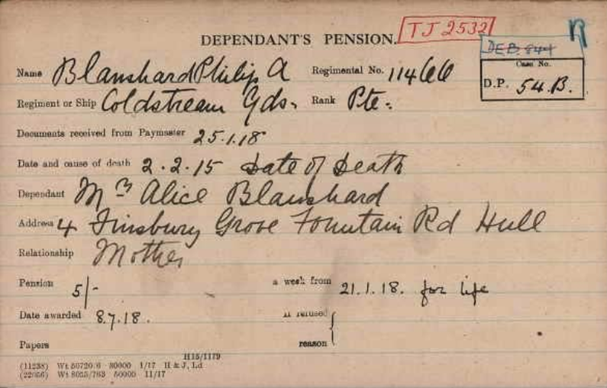 TJ 2532
R
DEPENDANT'S PENSION.
Case No.
D.P. 54.B.
Name Blanshard Philip A Regimental No. 11466
Regiment or Ship Coldstream Gds. Rank Pte.
Documents received from Paymaster 25.1.18
Date and cause of death 2.2.15 Date of Death
Dependant Mrs Alice Blanshard
Address 4 Finsbury Grove Fountain Rd Hull
Relationship Mother
Pension 5/- a week from 21.1.18. for life
Date awarded 8.7.18. If refused
Papers reason
H15/1179
(11238) Wt 50720/6 80000 1/17 H & J, Ld
(22656) Wt 8025/763 50000 11/17